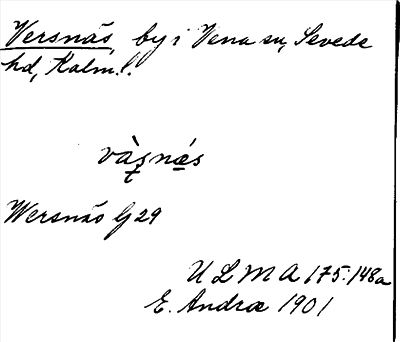 Versnäs, by i Vena sn, Sevede
hd, Kalm. l.
vàṣnǽs
Wersnäs Gj 29
ULMA 175:148a
E. Andræ 1901